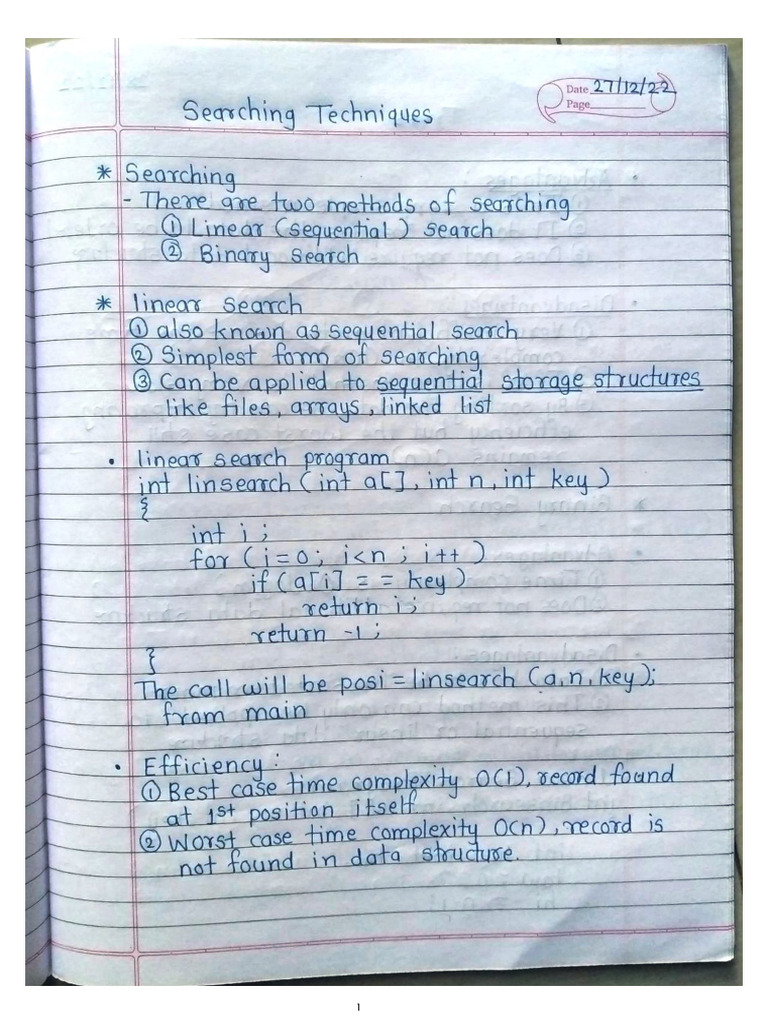 Date 27/12/22
Page
Searching Techniques
* Searching
- There are two methods of searching
① Linear (sequential) search
② Binary search
* linear search
① also known as sequential search
② Simplest form of searching
③ Can be applied to sequential storage structures
like files, arrays, linked list
• linear search program
int linsearch (int a[], int n, int key)
{
int i ;
for (i=0; i<n ; i++ )
if (a[i] = = key)
return i;
return -1;
}
The call will be posi = linsearch (a,n,key);
from main
• Efficiency :
① Best case time complexity O(1), record found
at 1st position itself
② Worst case time complexity O(n), record is
not found in data structure.
1